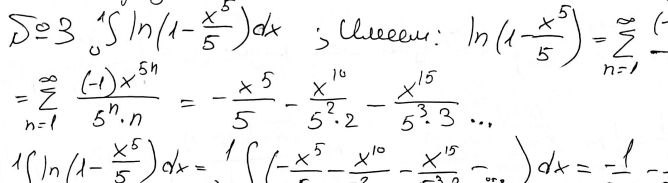 №3 ₀¹∫ ln(1 - x⁵/5) dx ; Имеем: ln(1 - x⁵/5) = ∑_{n=1}^{∞}
= ∑_{n=1}^{∞} (-1)x⁵ⁿ/(5ⁿ·n) = - x⁵/5 - x¹⁰/(5²·2) - x¹⁵/(5³·3) ...
¹∫ ln(1 - x⁵/5) dx = ¹∫ (- x⁵/5 - x¹⁰ - x¹⁵ - ...) dx = - 1